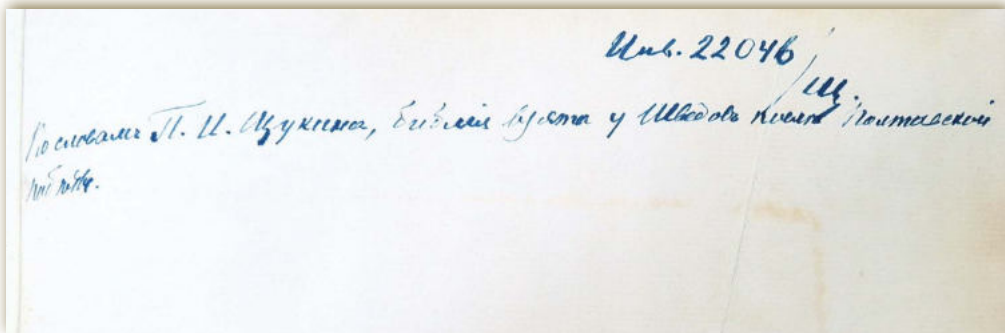 Инв. 22046/Щ.
По словамъ П. И. Щукина, библія взята у Шведовъ послѣ Полтавской
битвы.